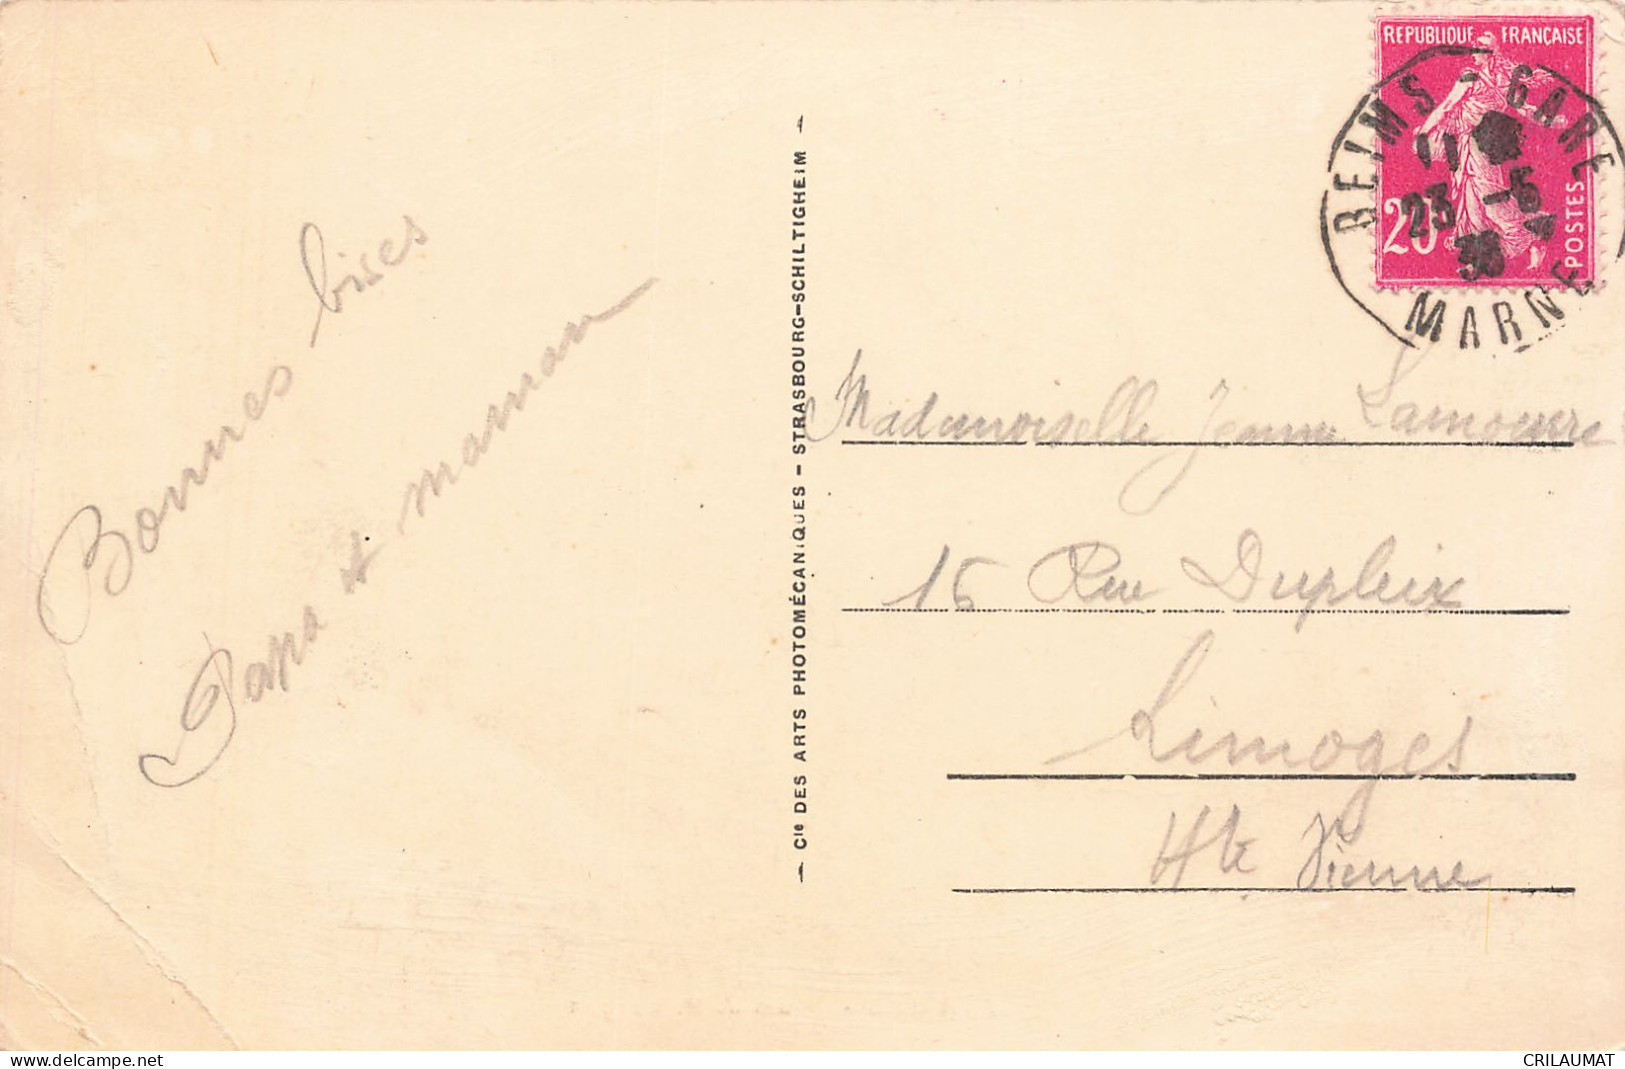 Bonnes bises
Papa et maman
Cie DES ARTS PHOTOMÉCANIQUES - STRASBOURG-SCHILTIGHEIM
REPUBLIQUE FRANÇAISE
20
POSTES
REIMS - GARE
11
23 -5
MARNE
Mademoiselle Jeanne Lamoure
16 Rue Dupleix
Limoges
Hte Vienne
www.delcampe.net
CRILAUMAT